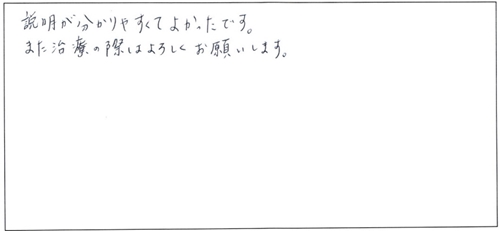 説明が分かりやすくてよかったです。
また治療の際はよろしくお願いします。